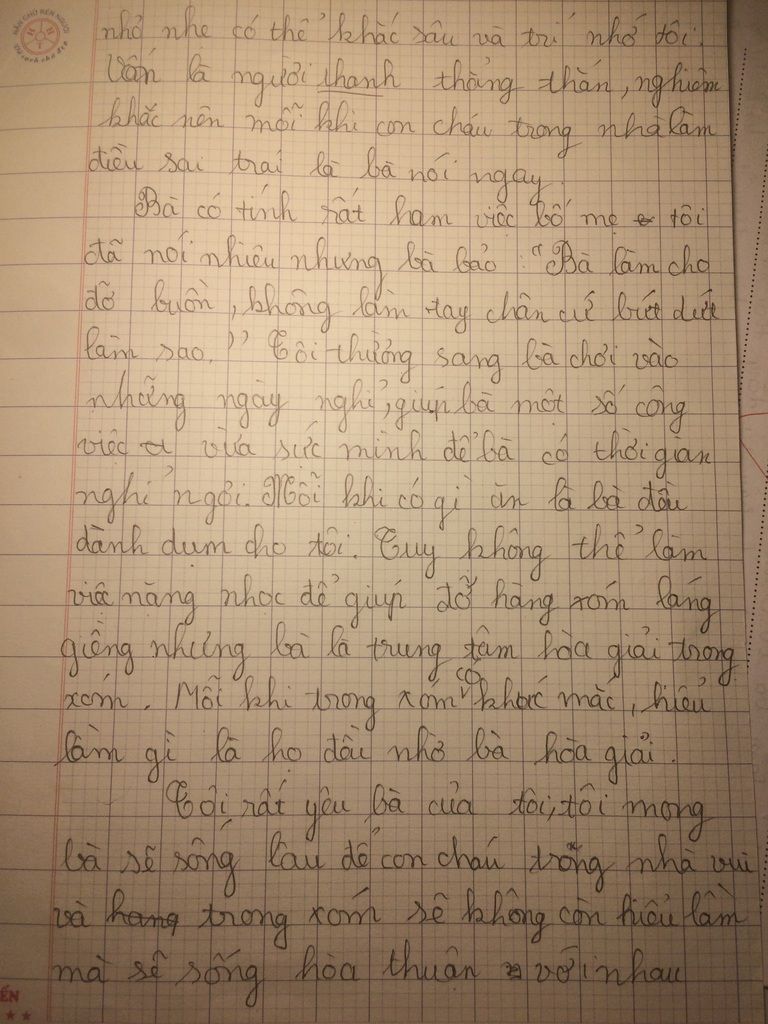 NẮN CHỮ RÈN NGƯỜI
nhỏ nhẹ có thể khắc sâu và trí nhớ tôi.
Vốn là người thanh thẳng thắn, nghiêm
khắc nên mỗi khi con cháu trong nhà làm
điều sai trái là bà nói ngay.
Bà có tính rất ham việc bố mẹ tôi
đã nói nhiều nhưng bà bảo : "Bà làm cho
đỡ buồn, không làm tay chân cứ bứt dứt
làm sao." Tôi thường sang bà chơi vào
những ngày nghỉ, giúp bà một số công
việc vừa sức mình để bà có thời gian
nghỉ ngơi. Mỗi khi có gì ăn là bà đều
dành dụm cho tôi. Tuy không thể làm
việc nặng nhọc để giúp đỡ hàng xóm láng
giềng nhưng bà là trung tâm hòa giải trong
xóm. Mỗi khi trong xóm có khúc mắc, hiểu
lầm gì là họ đều nhờ bà hòa giải.
Tôi rất yêu bà của tôi, tôi mong
bà sẽ sống lâu để con cháu trong nhà vui
và trong xóm sẽ không còn hiểu lầm
mà sẽ sống hòa thuận với nhau
ẾN